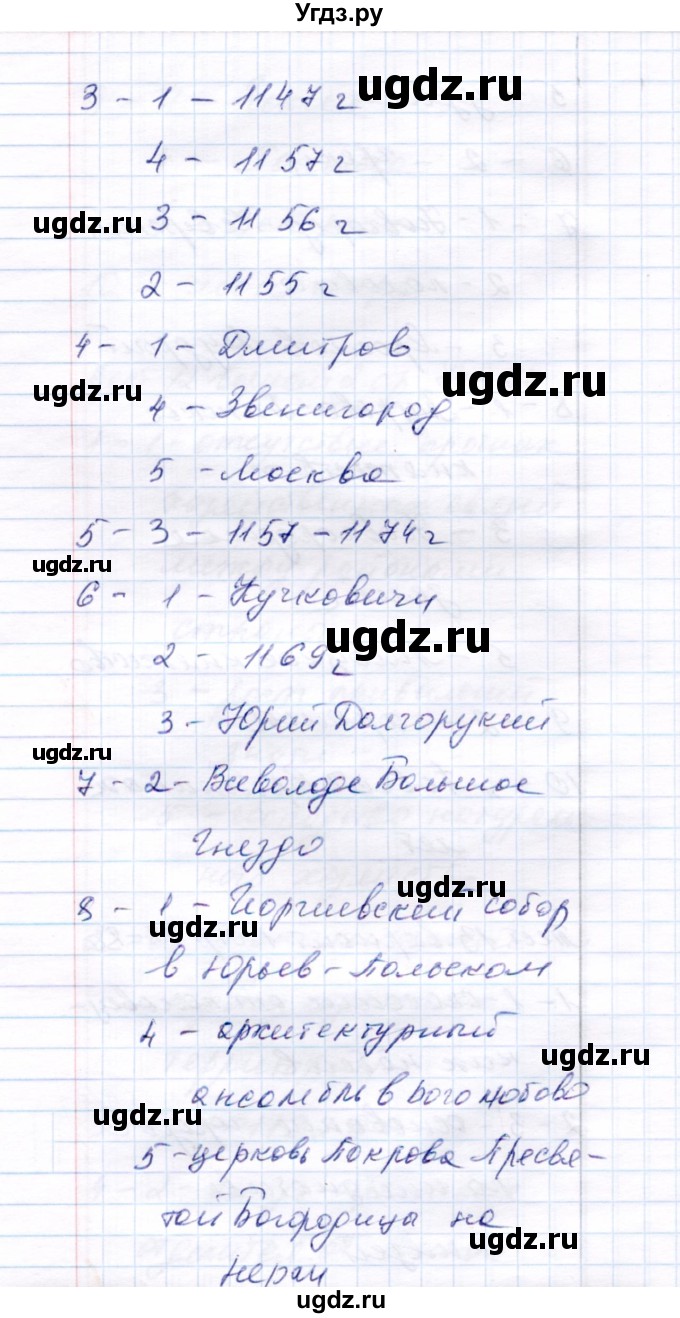 Угдз.ру
3 - 1 - 1147 г
ugdz.ru
4 - 1157 г
3 - 1156 г
ugdz.ru
2 - 1155 г
4 - 1 - Дмитров
ugdz.ru
ugdz.ru
4 - Звенигород
5 - Москва
5 - 3 - 1157 - 1174 г
ugdz.ru
6 - 1 - Кучковичи
ugdz.ru
2 - 1169 г
3 - Юрий Долгорукий
ugdz.ru
7 - 2 - Всеволоде Большое
Гнездо
ugdz.ru
8 - 1 - Георгиевский собор
ugdz.ru
в Юрьев - Польском
4 - архитектурный
ugdz.ru
ансамбль в Боголюбово
ugdz.ru
5 - церковь Покрова Пресвя-
той Богородица на
ugdz.ru
Нерли
ugdz.ru